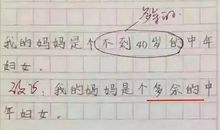 多余的
我的妈妈是个不到40岁的中年
妇女。
改 我的妈妈是个多余的中
年妇女。